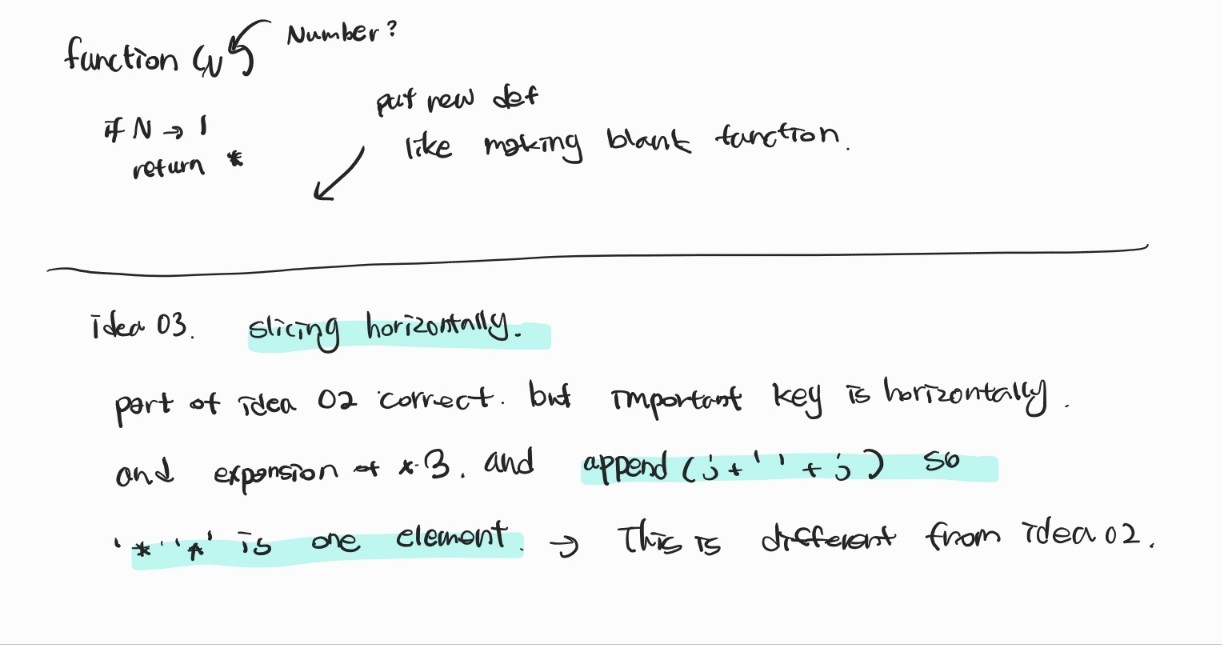 function (N) Number?
if N → 1
return *
put new def
like making blank function.
idea 03. slicing horizontally.
part of idea 02 correct. but important key is horizontally.
and expansion of *3. and append (j + ' ' + j) so
'*' '*' is one element. → This is different from idea 02.